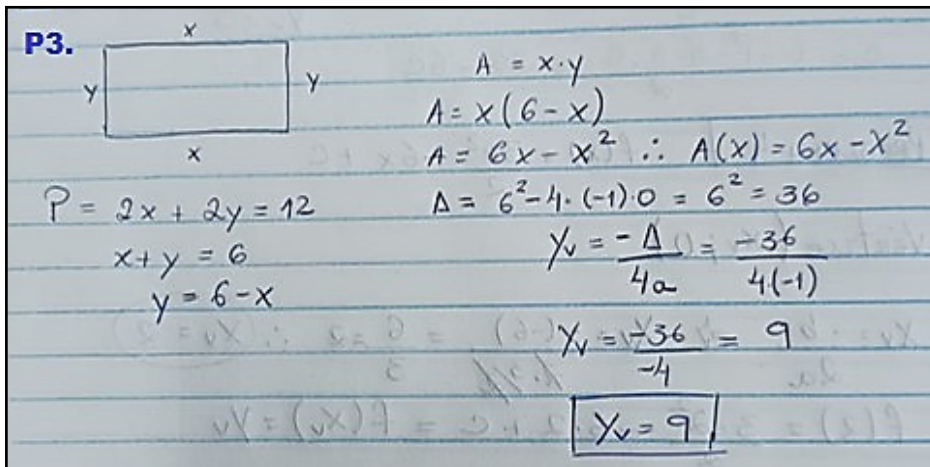 P3.
x
y
y
x
P = 2x + 2y = 12
x + y = 6
y = 6 - x
A = x·y
A = x(6 - x)
A = 6x - x² ∴ A(x) = 6x - x²
Δ = 6² - 4·(-1)·0 = 6² = 36
Yv = -Δ/4a = -36/4·(-1)
Yv = -36/-4 = 9
Yv = 9